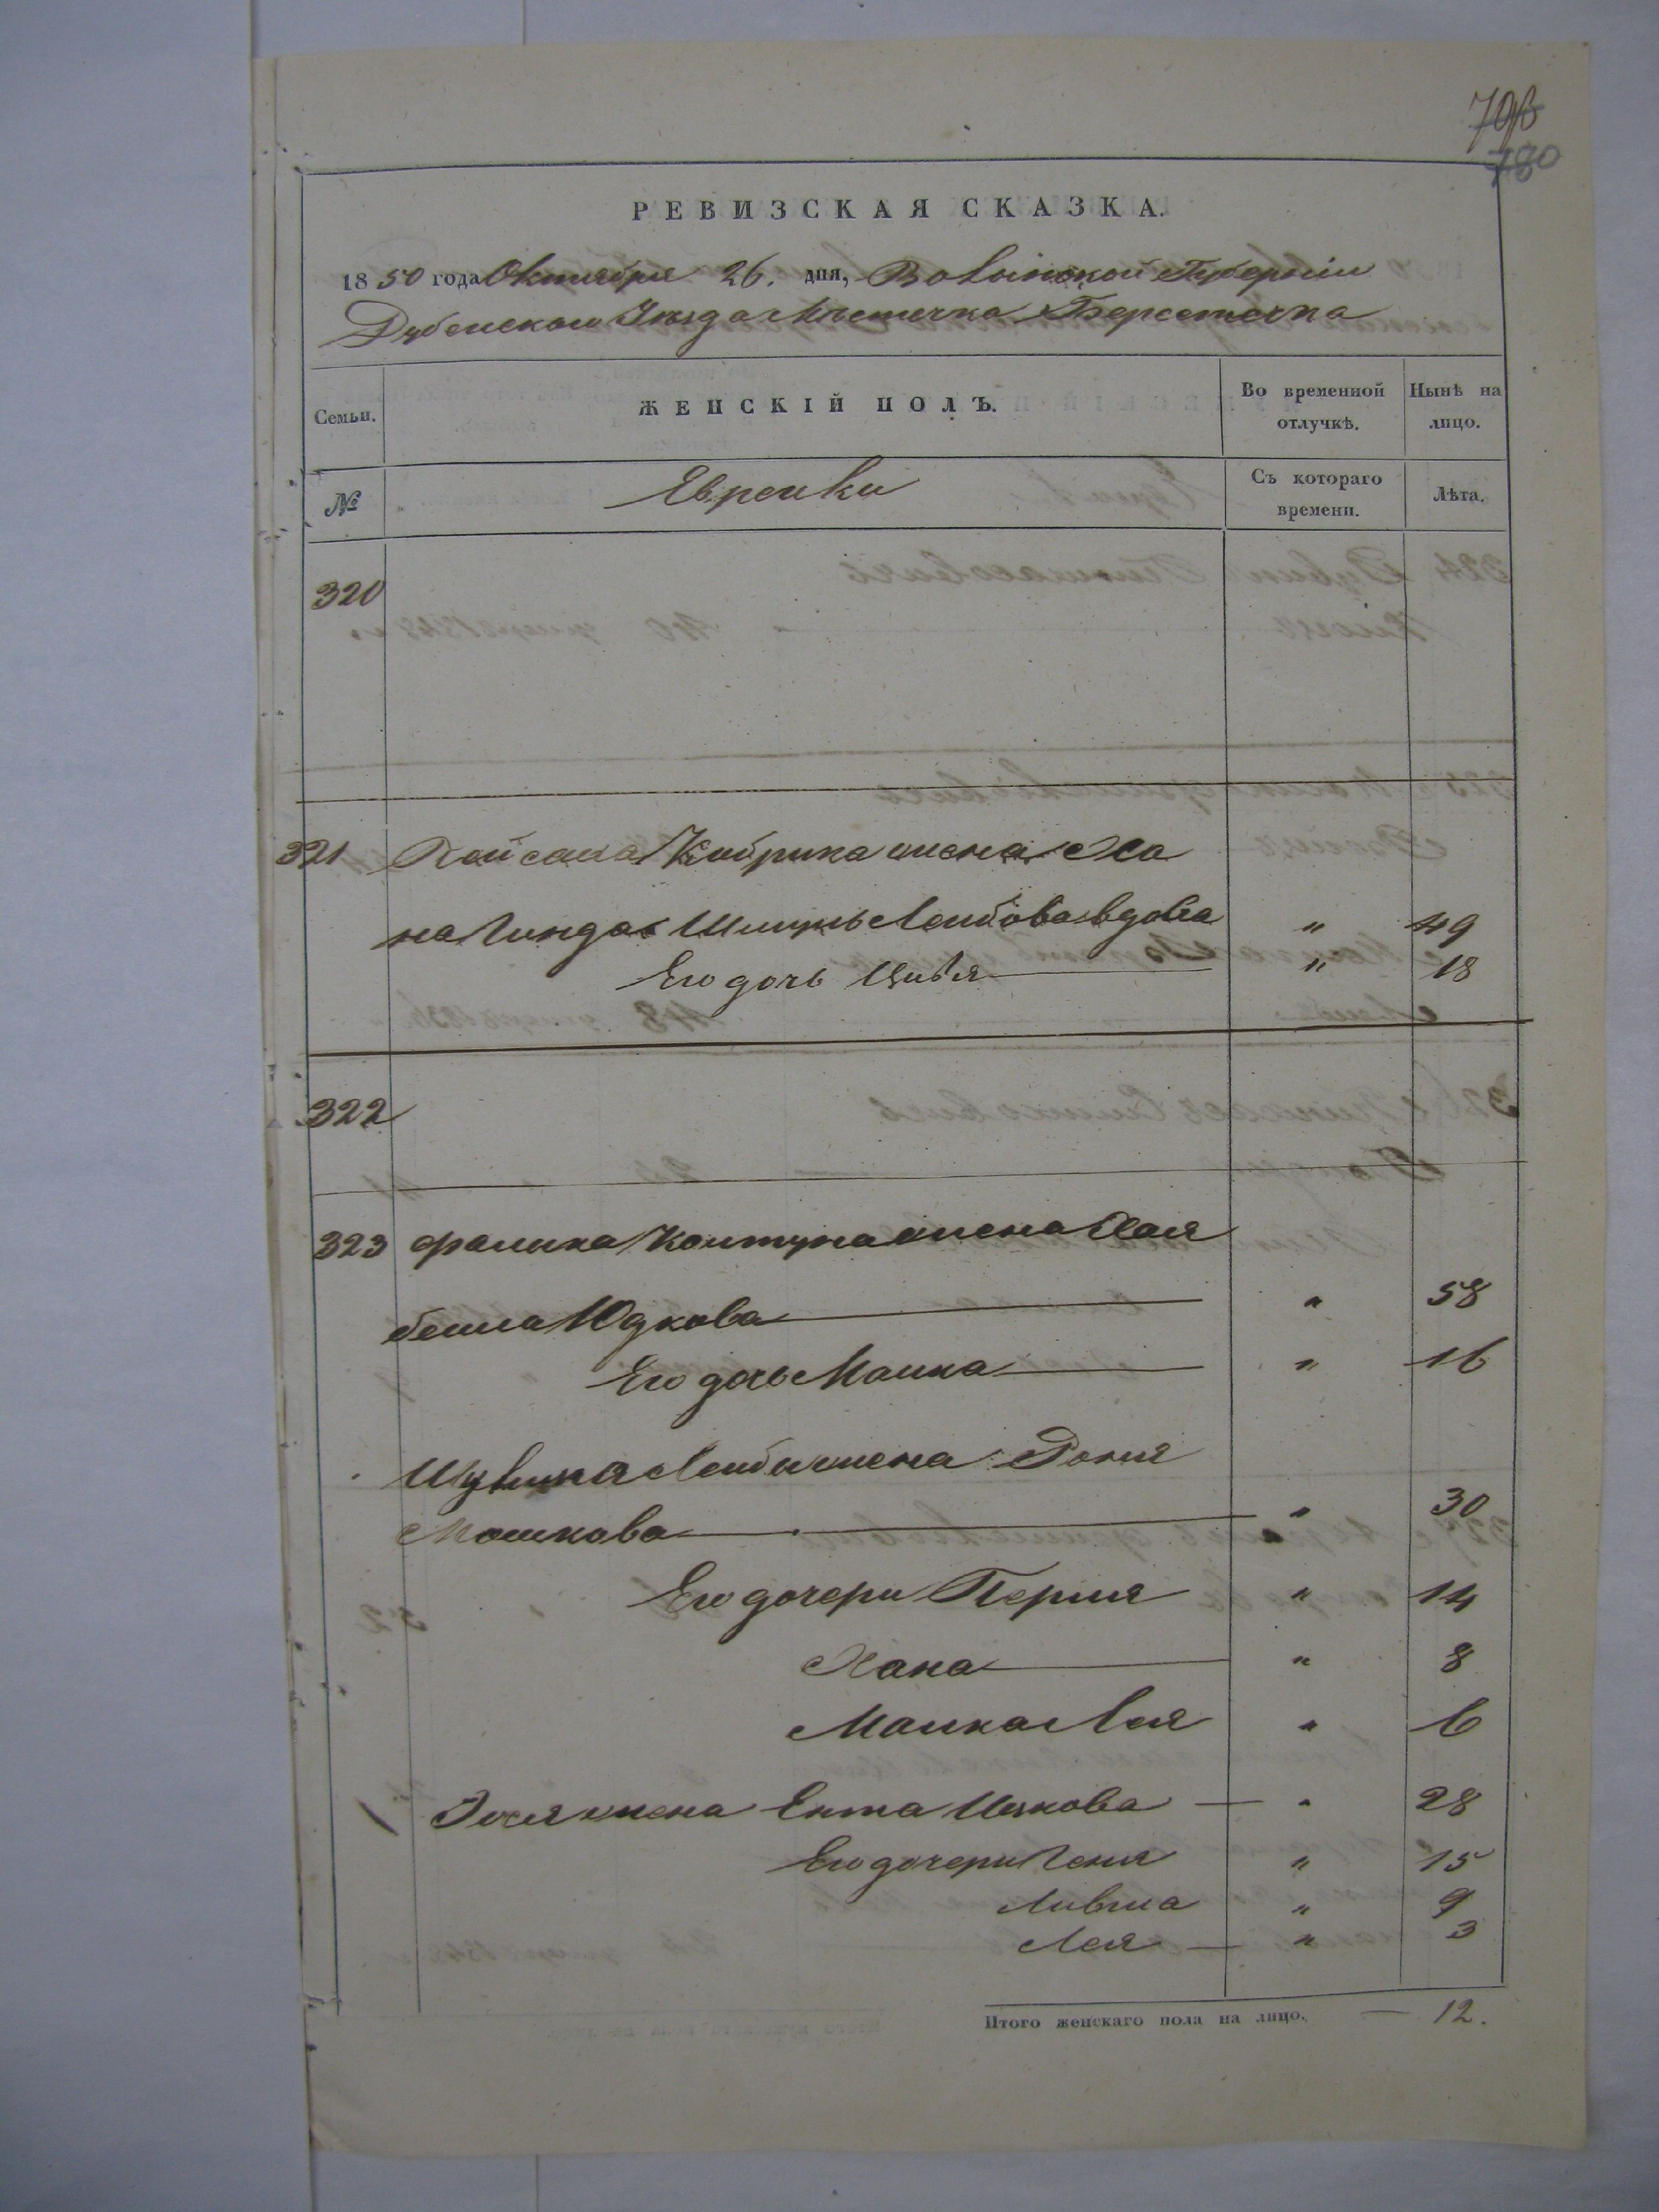 780
РЕВИЗСКАЯ СКАЗКА.
1850 года Октября 26. дня, Волынской Губерніи
Дубенскаго Уѣзда Мѣстечка Берестечка
Семьи.
ЖЕНСКІЙ ПОЛЪ.
Во временной отлучкѣ.
Нынѣ на лицо.
№
Еврейки
Съ котораго времени.
Лѣта.
320
321 жена Ха
на Гинда Шмуль Лейбова вдова " 49
Его дочь Цивья " 18
322
323 Фалика Контуна жена Хая
бейла Юдкова " 58
Его дочь Малка " 16
Лейбы жена Роня
Мошкова " 30
Его дочери Перля " 14
Хана " 8
Малка Лея " 6
жена Ента Ицкова — " 28
Его дочери Геня " 15
Ливша " 9
Лея — " 3
Итого женскаго пола на лицо. — 12.